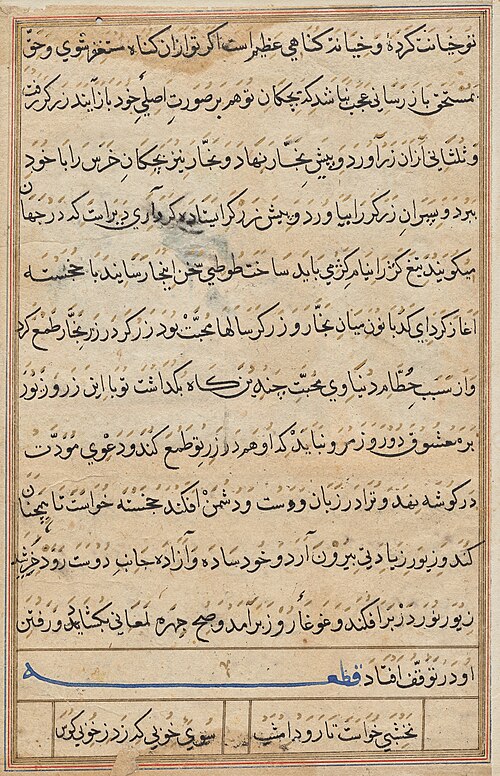 تو خیانت کردهٔ و خیانت گناهی عظیم است اگر تو ازان گناه مستغفر شوی و حق
بمستحق باز رسانی عجب نباشد که بچگان تو هم بر صورت اصلی خود باز آیند زرگر رفت
و ثلثانی ازان زر آورد و پیش نجار نهاد و نجار نیز بچگان خرس را با خود
ببرد و پسران زرگر را بیاورد و پیش زرگر ایستاده کرد آری دیر است که در جهان
میکویند تیغ کژ را نیام کژ می باید ساخت طوطی سخن اینجا رسانید با خجسته
آغاز کرد ای کدبانو میان نجار و زرگر سالها محبت بود زرگر در زر نجار طمع کرد
و از سبب حطام دنیاوی محبت چندین گاه بگذاشت تو با این زر و زیور
بر معشوق دور و زمرو نباید که او هم در زر تو طمع کند و دعوی مودت
در گوشه نهد و ترا در زبان دوست و دشمن افکند خجسته خواست تا همچنان
کند و زیور زیادتی بیرون آرد و خود ساده و آزاده جانب دوست رود خورشید
زیور نور در بر افکند و غوغاء روز برآمد و صبح چهره لمعانی بکشاید و رفتن
او در توقف افتاد قطعه
نخشبی خواست تا رود امشب سوی خوبی که زد در خوبی کوس